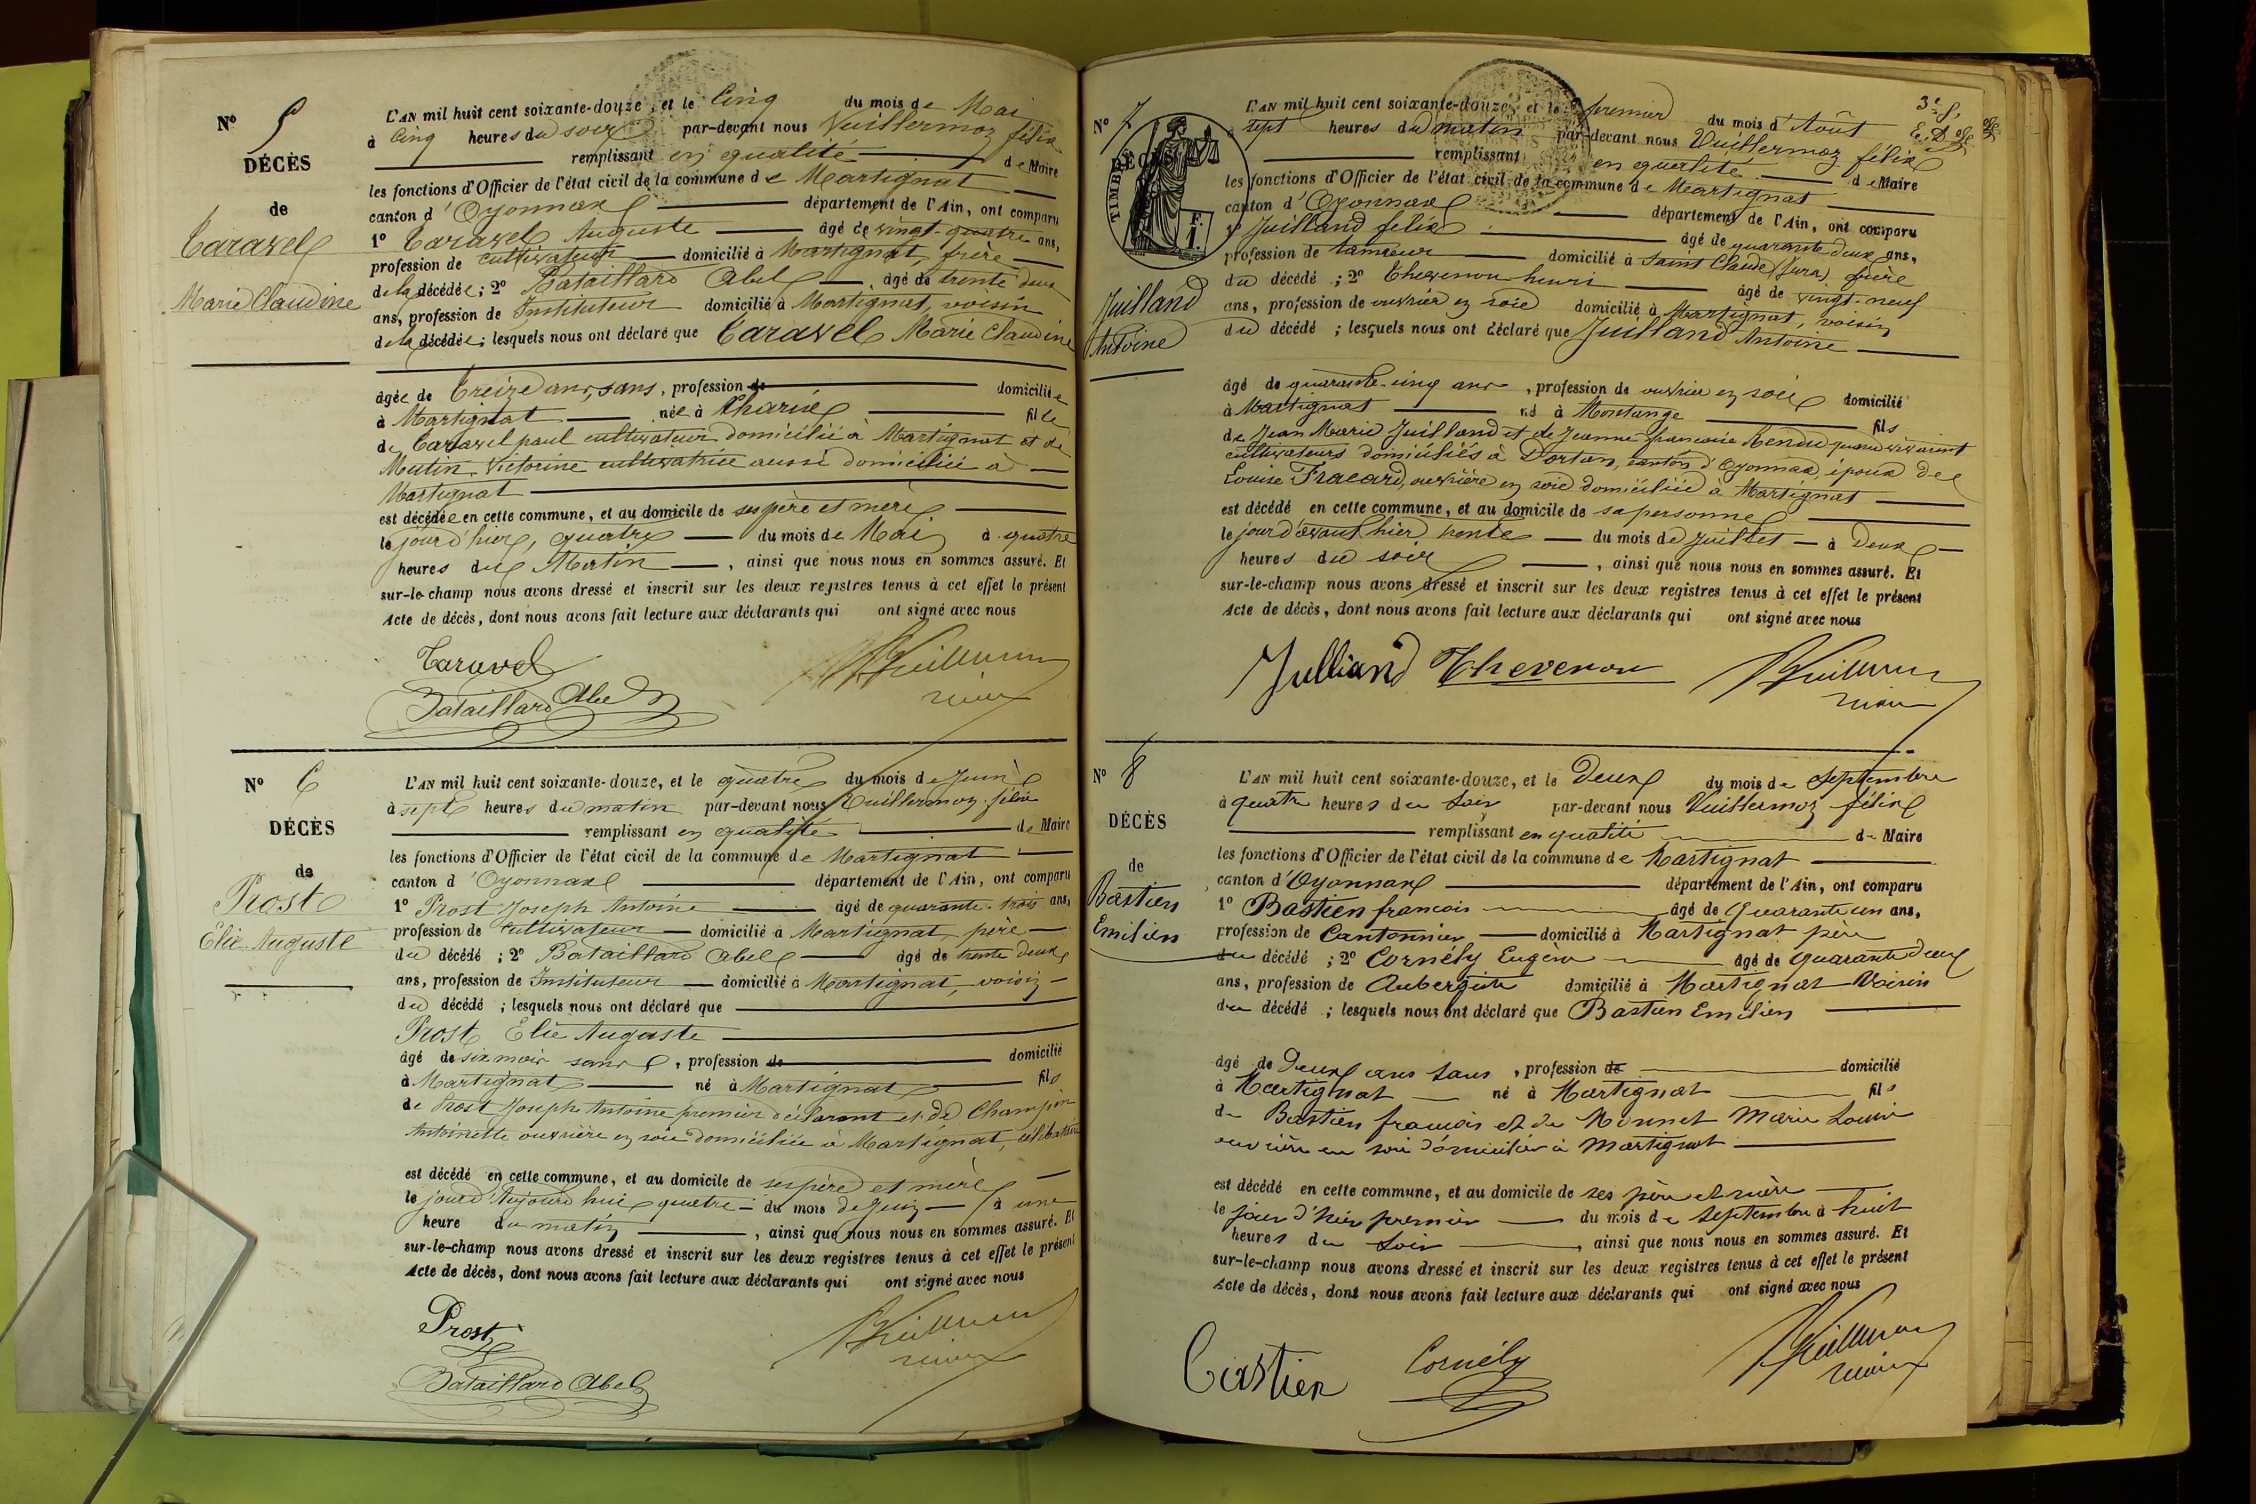 N° 5
DÉCÈS
de
Taravel
Marie Claudine
L'AN mil huit cent soixante-douze, et le Cinq du mois de Mai
à Cinq heures du soir par-devant nous Vuillermoz félix
remplissant en qualité de Maire
les fonctions d'Officier de l'état civil de la commune de Martignat
canton d'Oyonnax département de l'Ain, ont comparu
1° Taravel Auguste âgé de vingt-quatre ans,
profession de cultivateur domicilié à Martignat, frère
de la décédée; 2° Bataillard Abel, âgé de trente deux
ans, profession de Instituteur domicilié à Martignat, voisin
de la décédée; lesquels nous ont déclaré que Taravel Marie Claudine
âgée de treize ans, sans, profession de domiciliée
à Martignat née à Charix fille
de Taravel paul cultivateur domicilié à Martignat et de
Mutin Victorine cultivatrice aussi domiciliée à
Martignat
est décédée en cette commune, et au domicile de ses père et mère
le jour d'hier, quatre du mois de Mai à quatre
heures du Matin, ainsi que nous nous en sommes assuré. Et
sur-le-champ nous avons dressé et inscrit sur les deux registres tenus à cet effet le présent
Acte de décès, dont nous avons fait lecture aux déclarants qui ont signé avec nous
Taravel
Bataillard Abel
N° 6
DÉCÈS
de
Prost
Elie Auguste
L'AN mil huit cent soixante-douze, et le quatre du mois de Juin
à sept heures du matin par-devant nous Vuillermoz félix
remplissant en qualité de Maire
les fonctions d'Officier de l'état civil de la commune de Martignat
canton d'Oyonnax département de l'Ain, ont comparu
1° Prost Joseph Antoine âgé de quarante-trois ans,
profession de cultivateur domicilié à Martignat, père
du décédé; 2° Bataillard Abel âgé de trente deux
ans, profession de Instituteur domicilié à Martignat, voisin
du décédé; lesquels nous ont déclaré que
Prost Elie Auguste
âgé de six mois sans, profession de domicilié
à Martignat né à Martignat fils
de Prost Joseph Antoine premier déclarant et de Champion
Antoinette ouvrière en soie domiciliée à Martignat, célibataire
est décédé en cette commune, et au domicile de ses père et mère
le jour d'Aujourd'hui quatre du mois de Juin à une
heure du matin, ainsi que nous nous en sommes assuré. Et
sur-le-champ nous avons dressé et inscrit sur les deux registres tenus à cet effet le présent
Acte de décès, dont nous avons fait lecture aux déclarants qui ont signé avec nous
Prost
Bataillard Abel
3e S.
N° 7
DÉCÈS
TIMBRE
F.
1.
Juilland
Antoine
L'AN mil huit cent soixante-douze, et le premier du mois d'Août
à sept heures du matin par-devant nous Vuillermoz félix
remplissant en qualité de Maire
les fonctions d'Officier de l'état civil de la commune de Martignat
canton d'Oyonnax département de l'Ain, ont comparu
1° Juilland felix âgé de quarante deux ans,
profession de tanneur domicilié à Saint Claude (Jura) frère
du décédé; 2° Thevenon henri âgé de vingt-neuf
ans, profession de ouvrier en soie domicilié à Martignat, voisin
du décédé; lesquels nous ont déclaré que Juilland Antoine
âgé de quarante-cinq ans, profession de ouvrier en soie domicilié
à Martignat né à Montange fils
de Jean Marie Juilland et de Jeanne françoise Rendu quand vivaient
cultivateurs domiciliés à Dortan, canton d'Oyonnax, époux de
Louise Fracard, ouvrière en soie domiciliée à Martignat
est décédé en cette commune, et au domicile de sa personne
le jour d'avant hier trente du mois de Juillet à Deux
heures du soir, ainsi que nous nous en sommes assuré. Et
sur-le-champ nous avons dressé et inscrit sur les deux registres tenus à cet effet le présent
Acte de décès, dont nous avons fait lecture aux déclarants qui ont signé avec nous
Julliand Thevenon
N° 8
DÉCÈS
de
Bastien
Emilien
L'AN mil huit cent soixante-douze, et le Deux du mois de Septembre
à quatre heures du Soir par-devant nous Vuillermoz félix
remplissant en qualité de Maire
les fonctions d'Officier de l'état civil de la commune de Martignat
canton d'Oyonnax département de l'Ain, ont comparu
1° Bastien françois âgé de Quarante un ans,
profession de Cantonnier domicilié à Martignat père
du décédé; 2° Cornély Eugène âgé de Quarante deux
ans, profession de Aubergiste domicilié à Martignat Voisin
du décédé; lesquels nous ont déclaré que Bastien Emilien
âgé de Deux ans sans, profession de domicilié
à Martignat né à Martignat fils
de Bastien françois et de Monnet Marie Louise
ouvrière en soie domiciliés à Martignat
est décédé en cette commune, et au domicile de ses père et mère
le jour d'hier premier du mois de Septembre à huit
heures du Soir, ainsi que nous nous en sommes assuré. Et
sur-le-champ nous avons dressé et inscrit sur les deux registres tenus à cet effet le présent
Acte de décès, dont nous avons fait lecture aux déclarants qui ont signé avec nous
Bastien Cornély